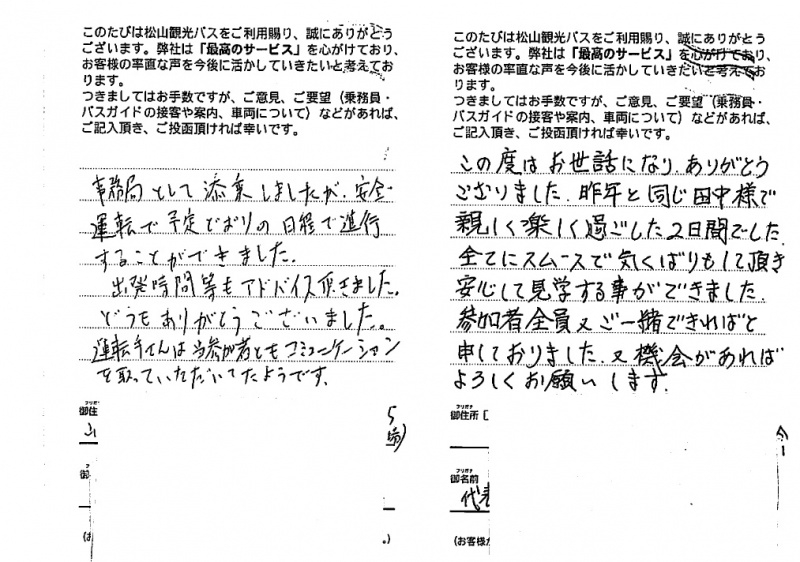 このたびは松山観光バスをご利用賜り、誠にありがとう
ございます。弊社は「最高のサービス」を心がけており、
お客様の率直な声を今後に活かしていきたいと考えてお
ります。
つきましてはお手数ですが、ご意見、ご要望（乗務員・
バスガイドの接客や案内、車両について）などがあれば、
ご記入頂き、ご投函頂ければ幸いです。
事務局として添乗しましたが、安全
運転で予定どおりの日程で進行
することができました。
出発時間等もアドバイス頂きました。
どうもありがとうございました。
運転手さんは当参加者ともコミュニケーション
を取っていただいてたようです。
フリガナ
御住
山
フリ
御
(お
このたびは松山観光バスをご利用賜り、誠にありがとう
ございます。弊社は「最高のサービス」を心がけており、
お客様の率直な声を今後に活かしていきたいと考えてお
ります。
つきましてはお手数ですが、ご意見、ご要望（乗務員・
バスガイドの接客や案内、車両について）などがあれば、
ご記入頂き、ご投函頂ければ幸いです。
この度はお世話になり、ありがとう
ござりました。昨年と同じ田中様で
親しく楽しく過ごした2日間でした
全てにスムースで気くばりもして頂き
安心して見学する事ができました。
参加者全員又ご一緒できればと
申しておりました。又機会があれば
よろしくお願いします。
フリガナ
御住所
フリガナ
御名前
代表
(お客様が